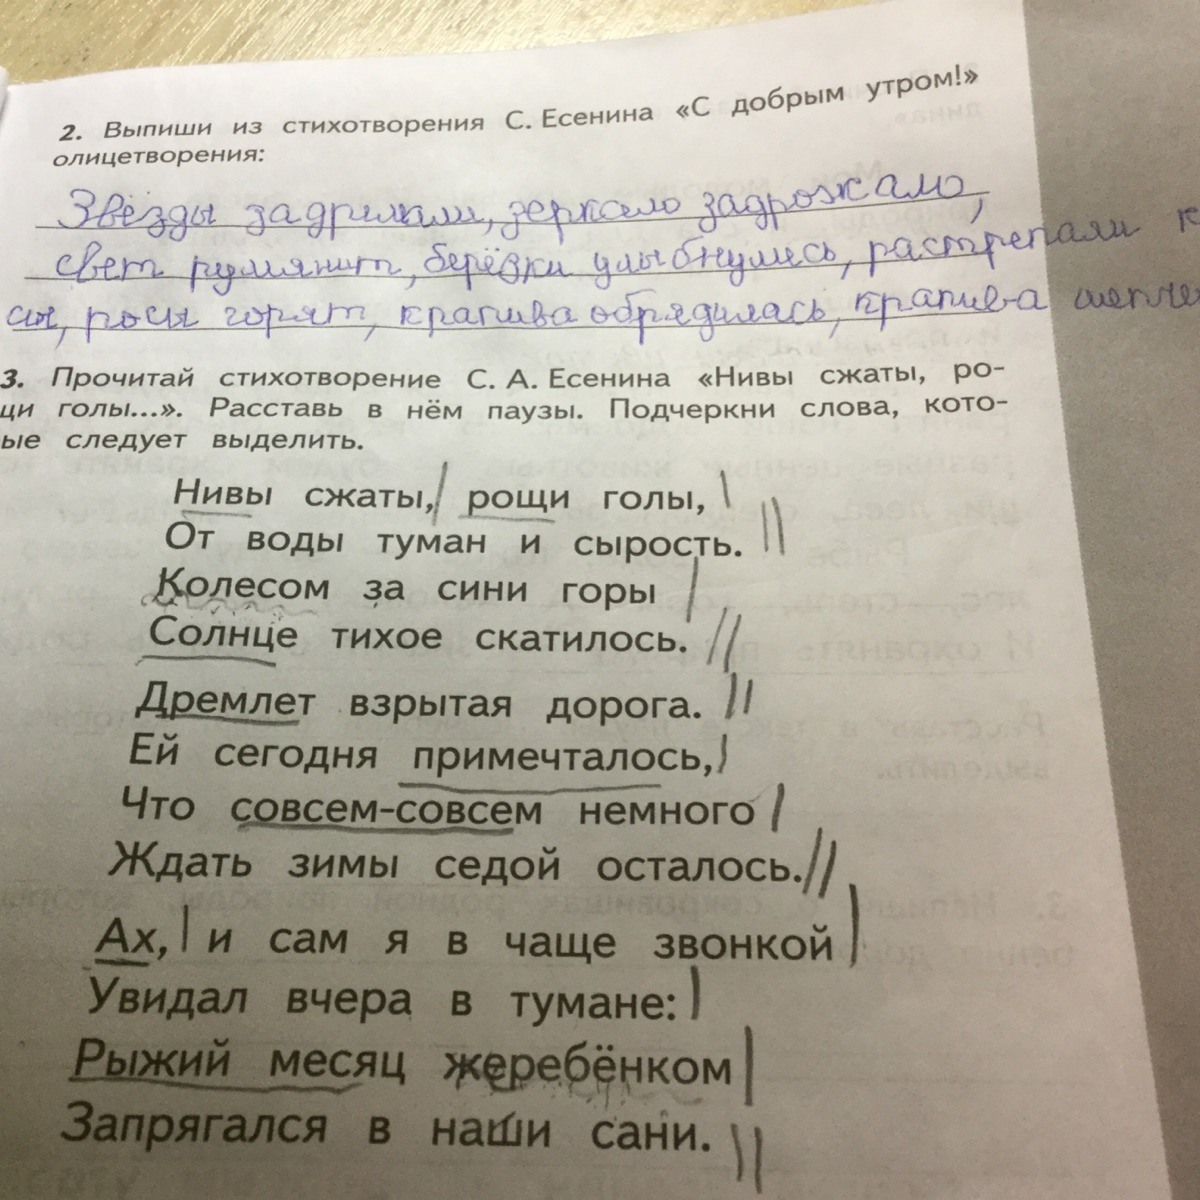 2. Выпиши из стихотворения С. Есенина «С добрым утром!»
олицетворения:
Звёзды задремали, зеркало задрожало,
свет румянит, берёзки улыбнулись, растрепали к
си, росы горят, крапива обрядилась, крапива шепче
3. Прочитай стихотворение С. А. Есенина «Нивы сжаты, ро-
щи голы...». Расставь в нём паузы. Подчеркни слова, кото-
ые следует выделить.
Нивы сжаты, рощи голы,
От воды туман и сырость.
Колесом за сини горы
Солнце тихое скатилось.
Дремлет взрытая дорога.
Ей сегодня примечталось,
Что совсем-совсем немного
Ждать зимы седой осталось.
Ах, и сам я в чаще звонкой
Увидал вчера в тумане:
Рыжий месяц жеребёнком
Запрягался в наши сани.